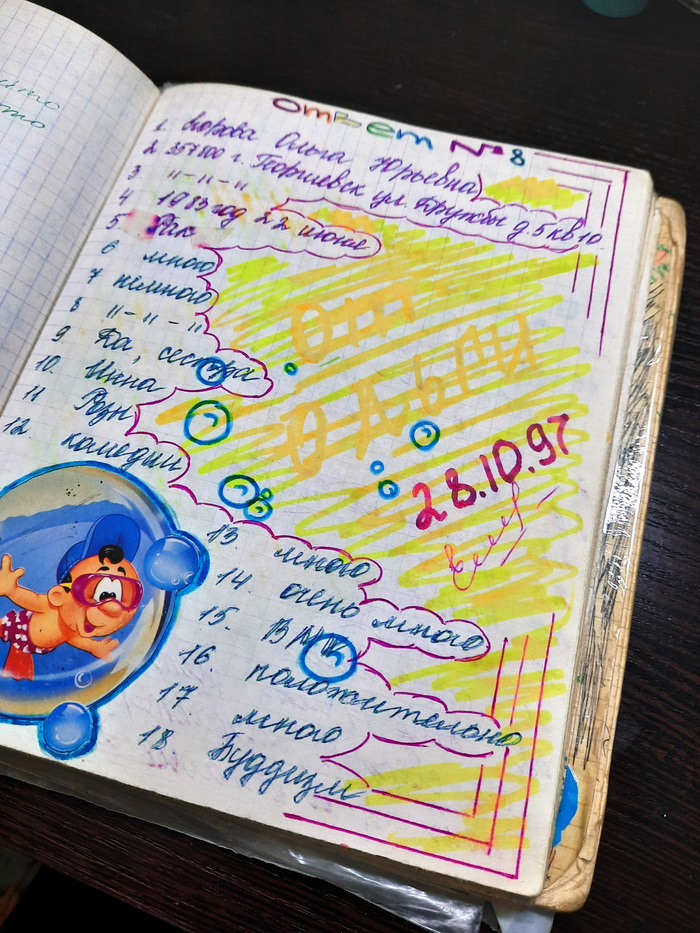 Ответ №8
1. Юрьевна Ольга
2. 357800 г. Георгиевск ул. Дружбы д 5 кв 10
3 11-11-11
4 1983 год 22 июня
5 Рак
6 много
7 немного
8 11-11-11
9 Да, сестра
10. Инна
11 Розн
12. комедии
От
Ольги
28.10.97
13. много
14. очень много
15. В
16. положительно
17 много
18. Буддизм